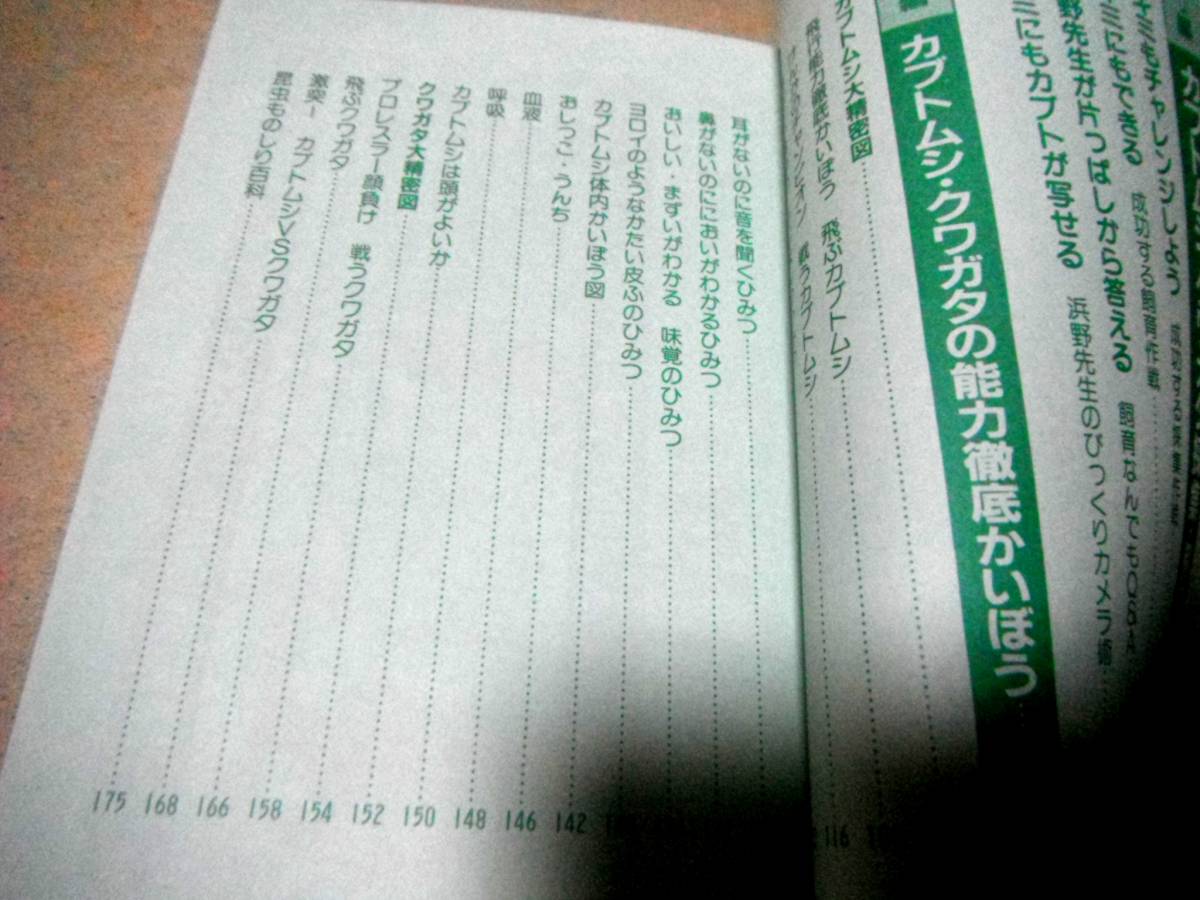 チャレンジしよう
ミにもできる 成功する飼育作戦
野先生が片っぱしから答える 飼育なんでもQ&A
ミにもカブトが写せる 浜野先生のびっくりカメラ術
カブトムシ・クワガタの能力徹底かいぼう
カブトムシ大精密図
飛行能力徹底かいぼう 飛ぶカブトムシ
チャンピオン 戦うカブトムシ 116
耳がないのに音を聞くひみつ
鼻がないのににおいがわかるひみつ
おいしい・まずいがわかる 味覚のひみつ
ヨロイのようなかたい皮ふのひみつ
カブトムシ体内かいぼう図 142
おしっこ・うんち 146
血液 148
呼吸 150
カブトムシは頭がよいか 152
クワガタ大精密図 154
プロレスラー顔負け 戦うクワガタ 158
飛ぶクワガタ 166
激突！ カブトムシVSクワガタ 168
昆虫ものしり百科 175